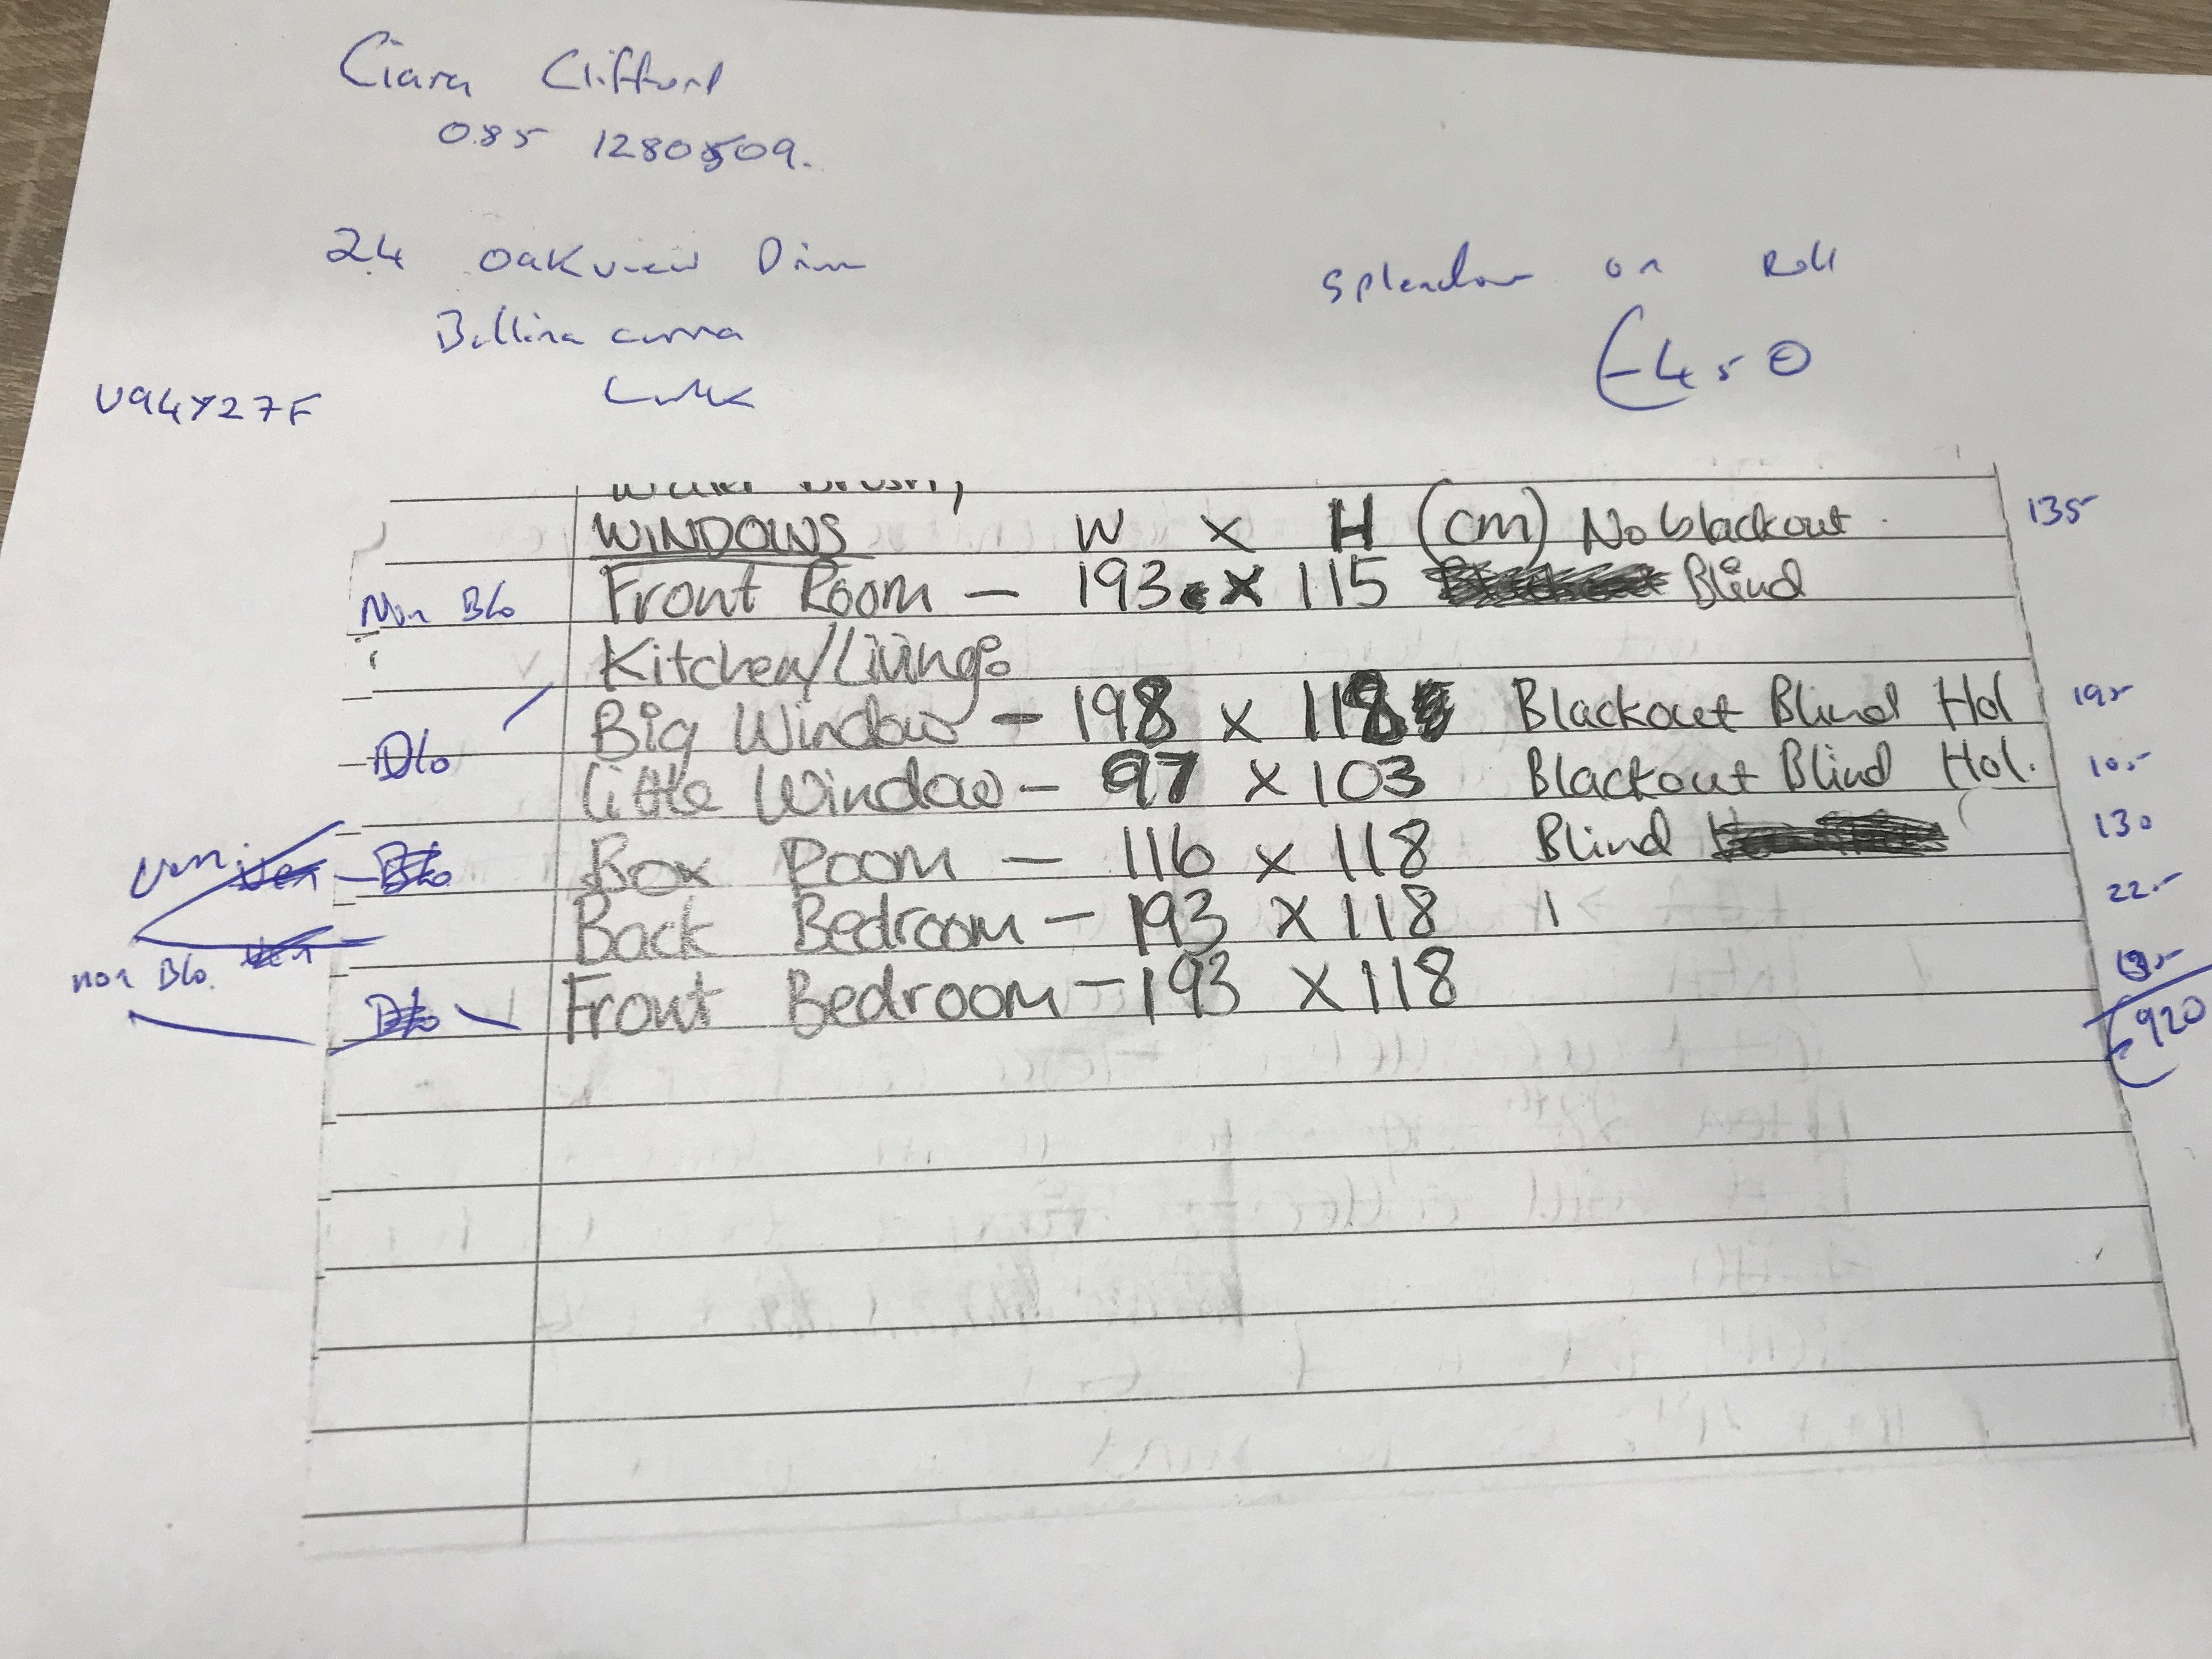 Ciara Clifford
085 1280509.
24 Oakview Drive
Splendour on Roll
€450
Ballinacurra
U94Y27F Cork
WINDOWS W x H (cm) No blackout 135
Non Blo Front Room - 193 x 115 Blind
Kitchen/Living:
Big Window - 198 x 118 Blackout Blind Hol 195
Blo little Window - 97 x 103 Blackout Blind Hol. 105
Box Room - 116 x 118 Blind 130
Back Bedroom - 193 x 118 225
non Blo.
Front Bedroom - 193 x 118
€920